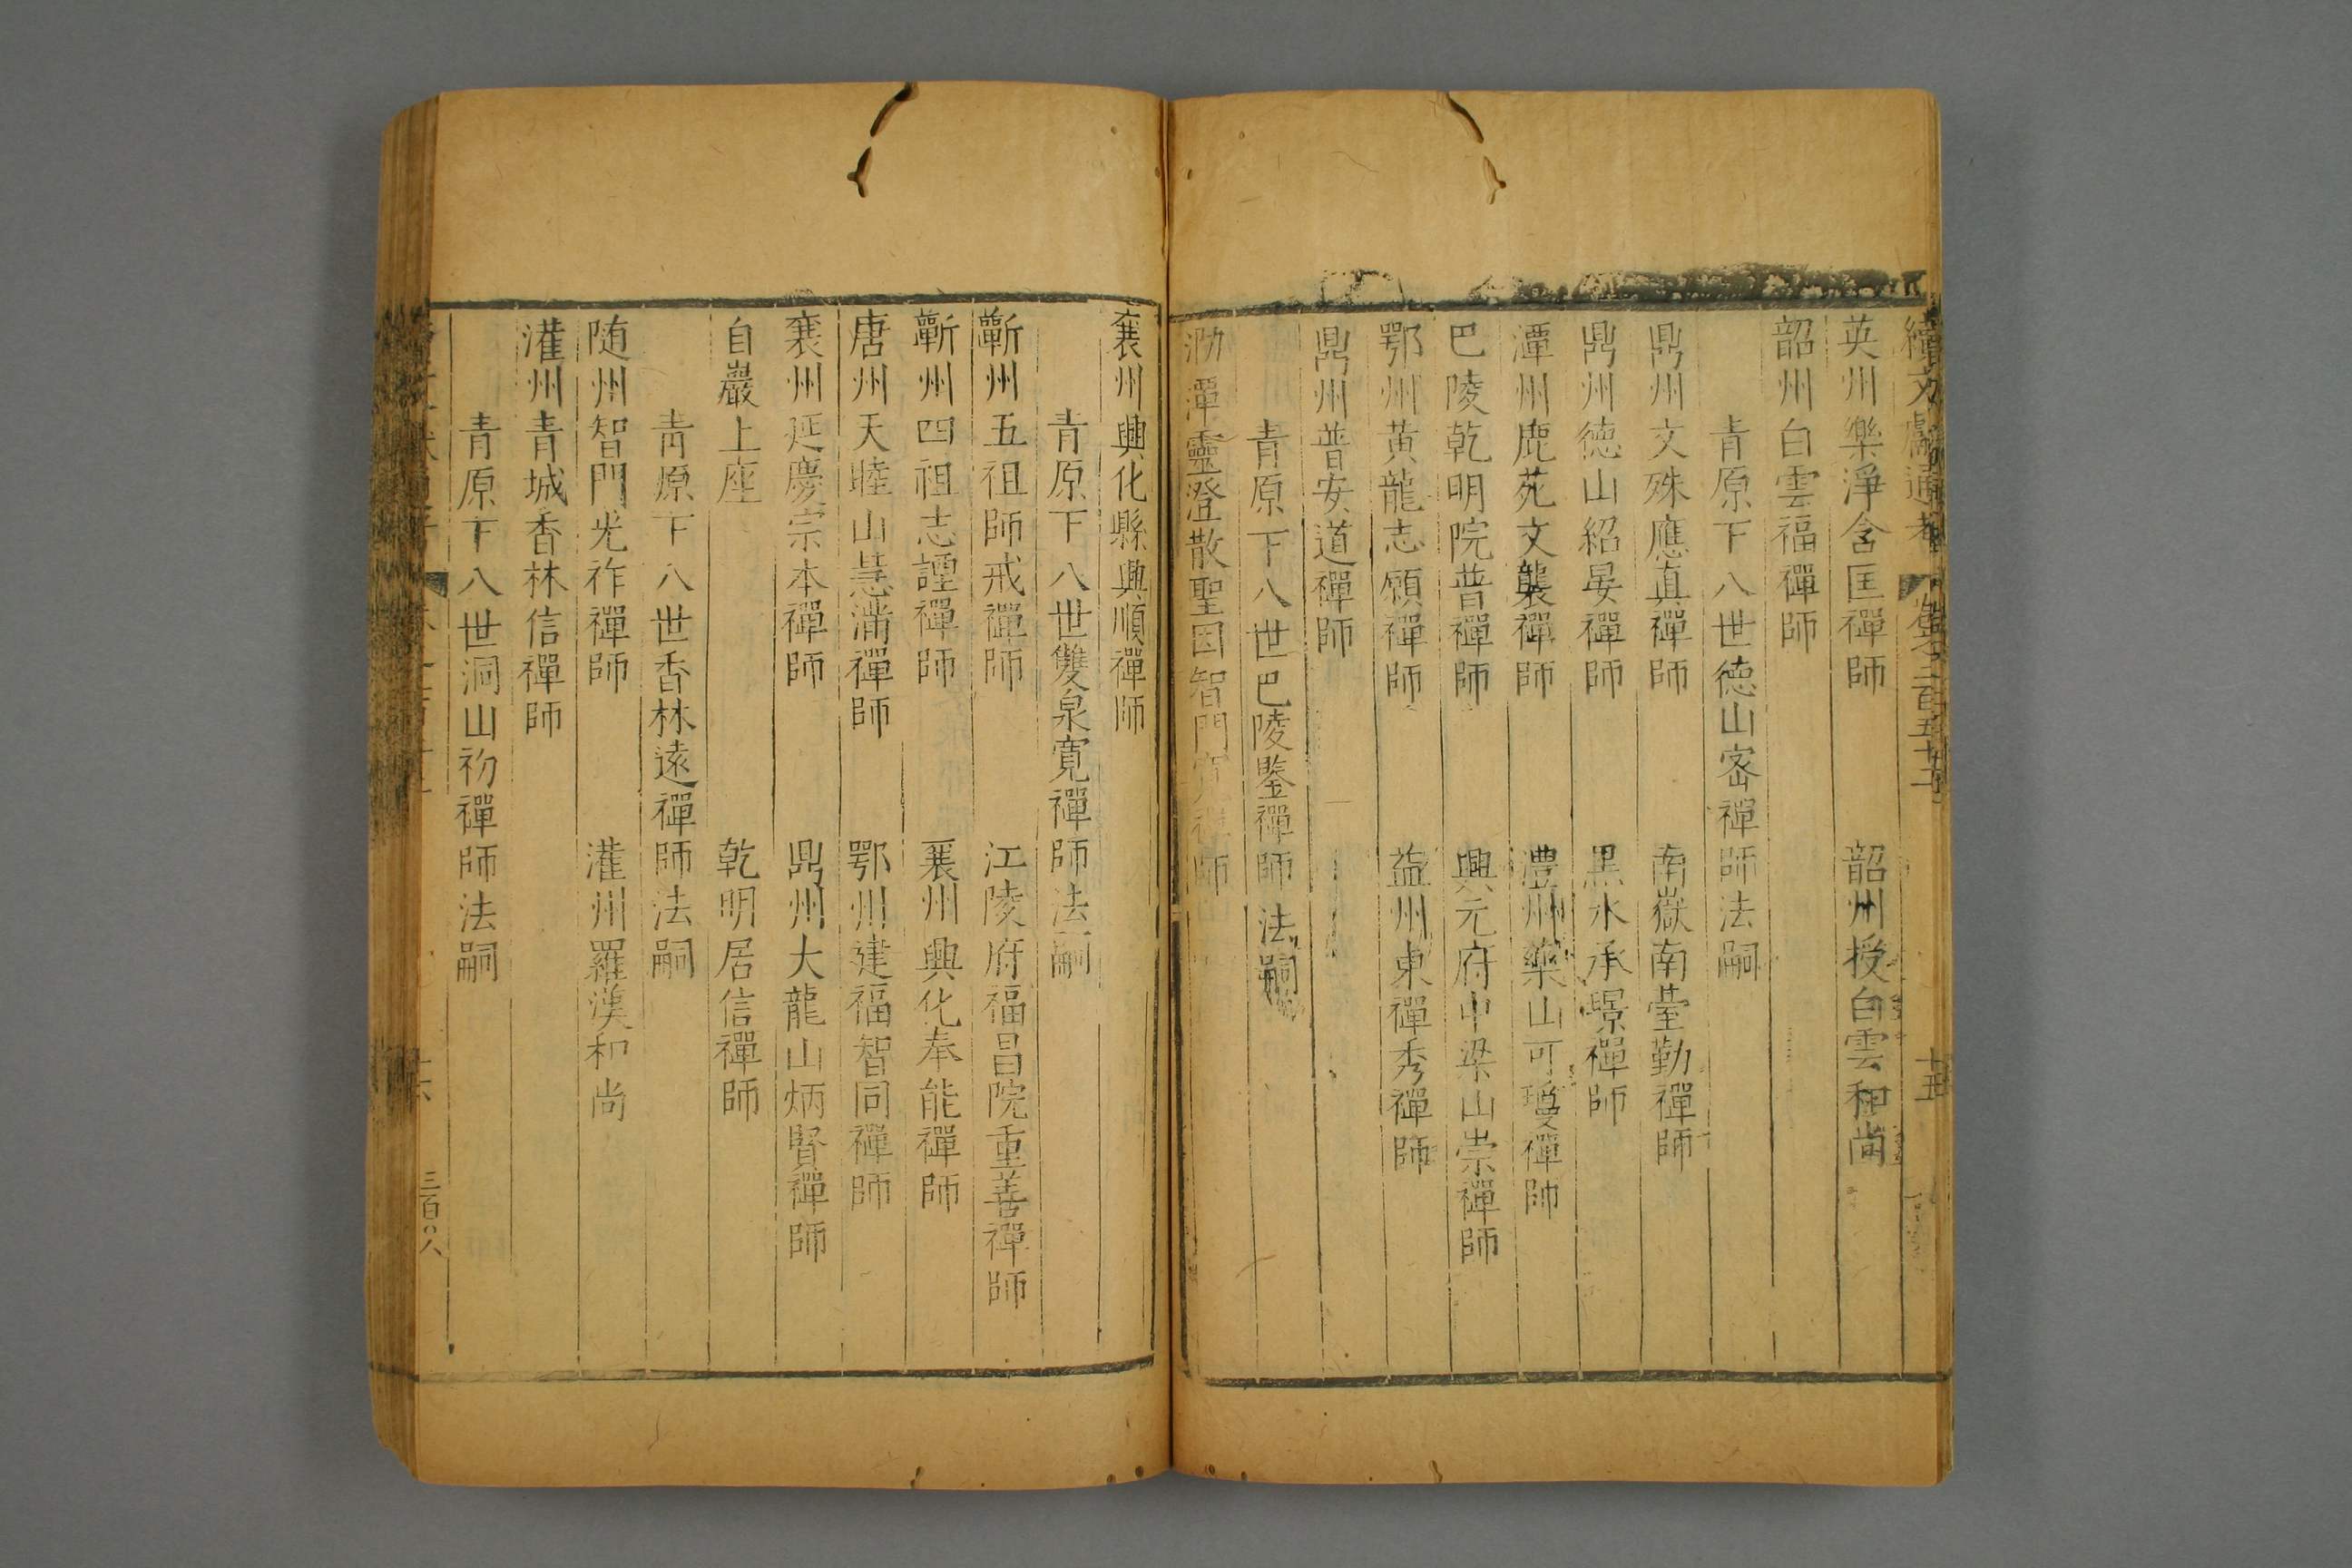 續文獻通考 卷二百五十二 十五
英州樂淨含匡禪師 韶州授白雲和尚
韶州白雲福禪師
青原下八世德山密禪師法嗣
鼎州文殊應真禪師 南嶽南臺勤禪師
鼎州德山紹晏禪師 黑水承璟禪師
潭州鹿苑文襲禪師 澧州藥山可瓊禪師
巴陵乾明院普禪師 興元府中梁山崇禪師
鄂州黃龍志願禪師 益州東禪秀禪師
鼎州普安道禪師
青原下八世巴陵鑒禪師法嗣
泐潭靈澄散聖 因智門 禪師
襄州興化縣興順禪師
青原下八世雙泉寬禪師法嗣
蘄州五祖師戒禪師 江陵府福昌院重善禪師
蘄州四祖志諲禪師 襄州興化奉能禪師
唐州天睦山慧滿禪師 鄂州建福智同禪師
襄州延慶宗本禪師 鼎州大龍山炳賢禪師
自巖上座 乾明居信禪師
青原下八世香林遠禪師法嗣
随州智門光祚禪師 灌州羅漢和尚
灌州青城香林信禪師
青原下八世洞山初禪師法嗣
十六 三百八